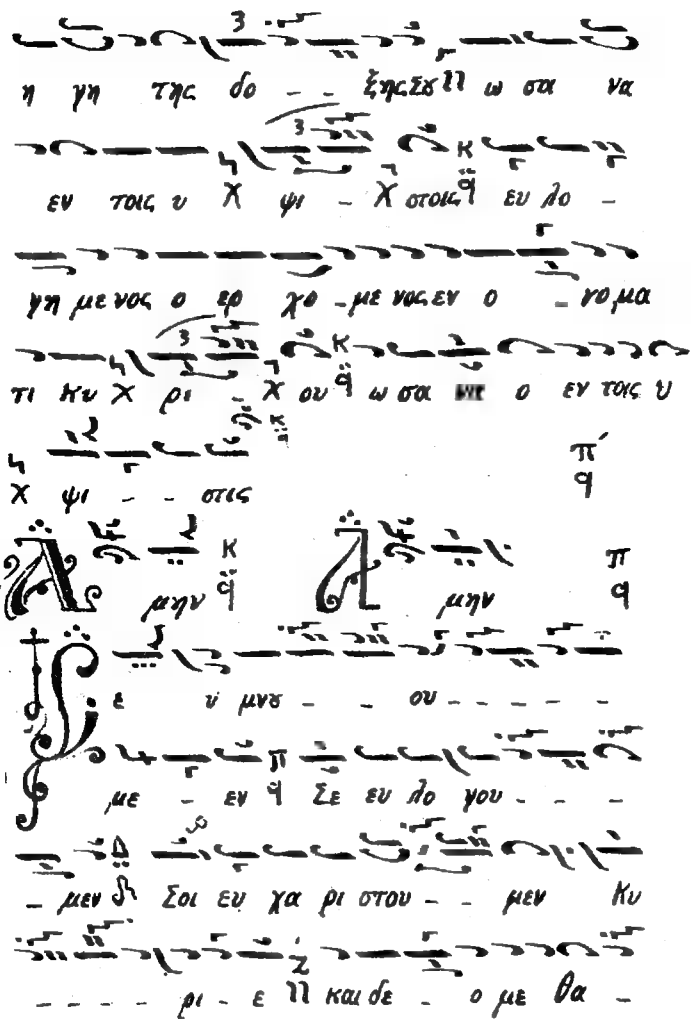 η γη της δο - - ξης Σȣ ω σα να
εν τοις υ Χ ψι - Χ στοις ευ λο -
γη με νος ο ερ χο - με νος εν ο - νο μα
τι Κυ Χ ρι - Χ ου ω σα ο εν τοις υ
Χ ψι - - στις
μην μην
ε ύ μνȣ - - ου - - - - - -
με - εν Σε ευ λο γου - - - -
- μεν Σοι ευ χα ρι στου - - μεν Κυ
- - - - ρι - ε και δε - ο με θα -